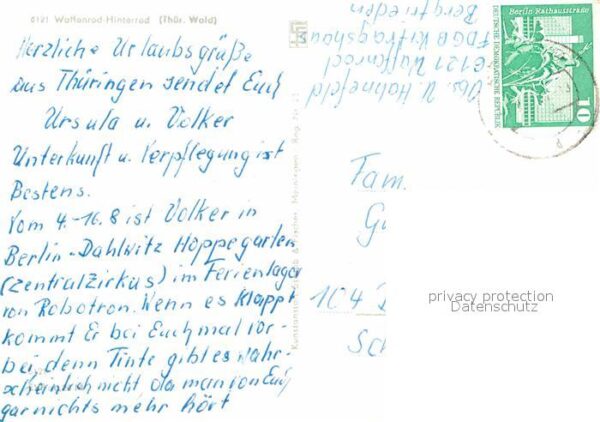 6121 Waffenrod-Hinterrod (Thür. Wald)
Herzliche Urlaubsgrüße
aus Thüringen sendet Euch
Ursula u. Volker
Unterkunft u. Verpflegung ist
Bestens.
Vom 4.-16.8 ist Volker in
Berlin-Dahlwitz Hoppegarten
(Zentralzirkus) im Ferienlager
von Robotron. Wenn es klappt
kommt Er bei Euch mal vor-
bei denn Tinte gibt es wahr-
scheinlich nicht da man von Euch
gar nichts mehr hört
Abs. U. Hahnefeld
6121 Waffenrod
FDGB
Bergfrieden
Berlin Rathausstraße
DEUTSCHE DEMOKRATISCHE REPUBLIK
10
Fam.
104
privacy protection
Datenschutz